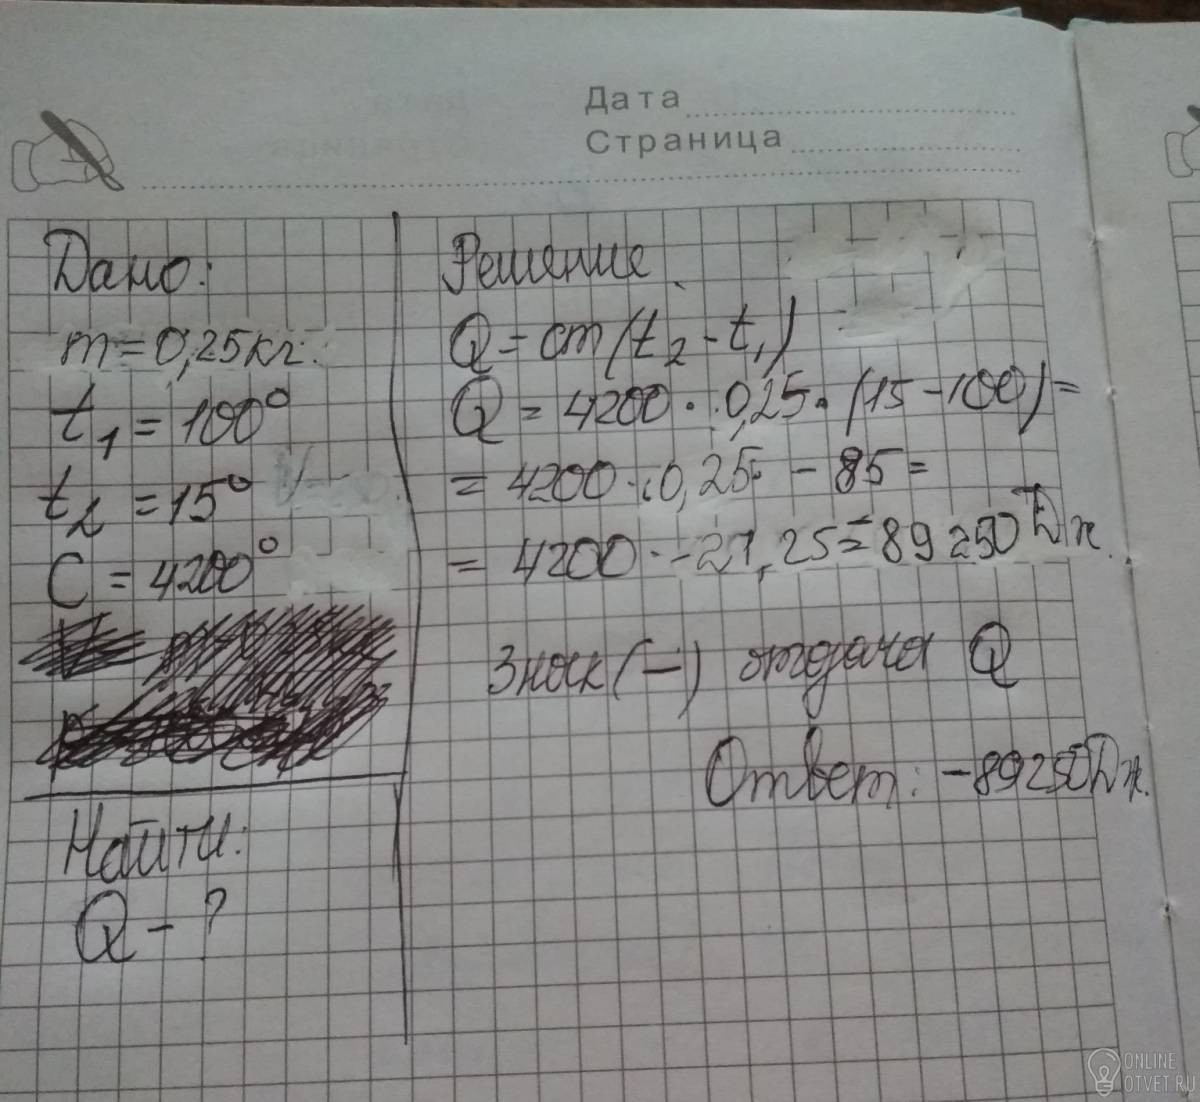 Дата
Страница
Дано:
m = 0,25 кг.
t₁ = 100°
t₂ = 15°
C = 4200°
Найти:
Q - ?
Решение
Q = cm (t₂ - t₁)
Q = 4200 · 0,25 · (15 - 100) =
= 4200 · 0,25 · - 85 =
= 4200 · - 21,25 = 89250 Дж.
Знак (-) отдача Q
Ответ: -89250 Дж.
ONLINE
OTVET.RU